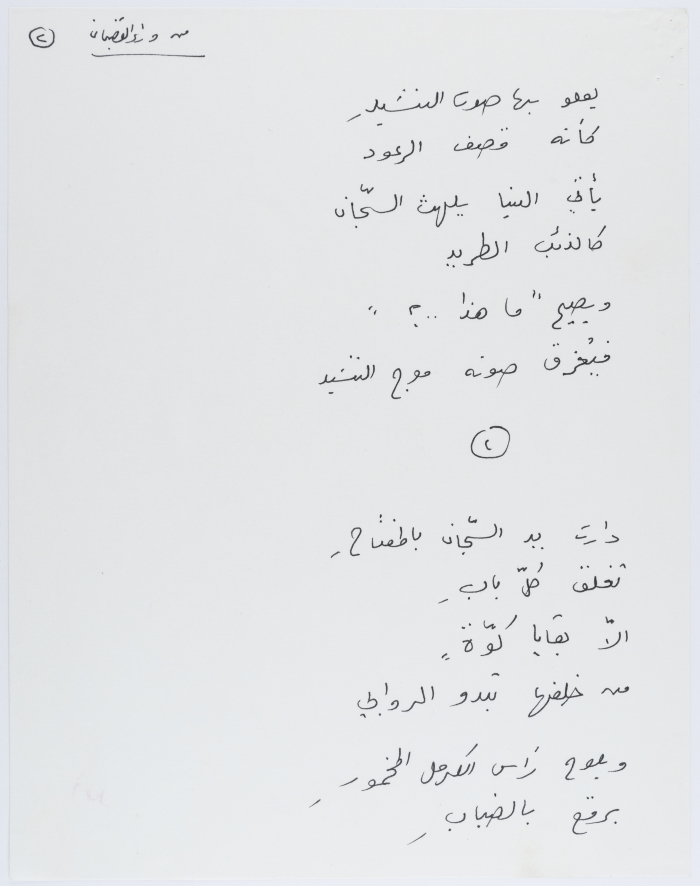 من وراء القضبان ②
يعلو بها صوت النشيدِ
كأنه قصف الرعود
يأتي إلينا يلهث السّجّان
كالذئب الطريد
ويصيح "ما هذا ..؟ "
فيُغرق صوته موج النشيد
②
دارت يد السّجّان بالمفتاحِ
تغلق كُلّ بابِ
الاّ بقايا كوّةٍ
من خلفها تبدو الروابي
ويلوح رأس الكرمل المخمورِ
برقع بالضبابِ